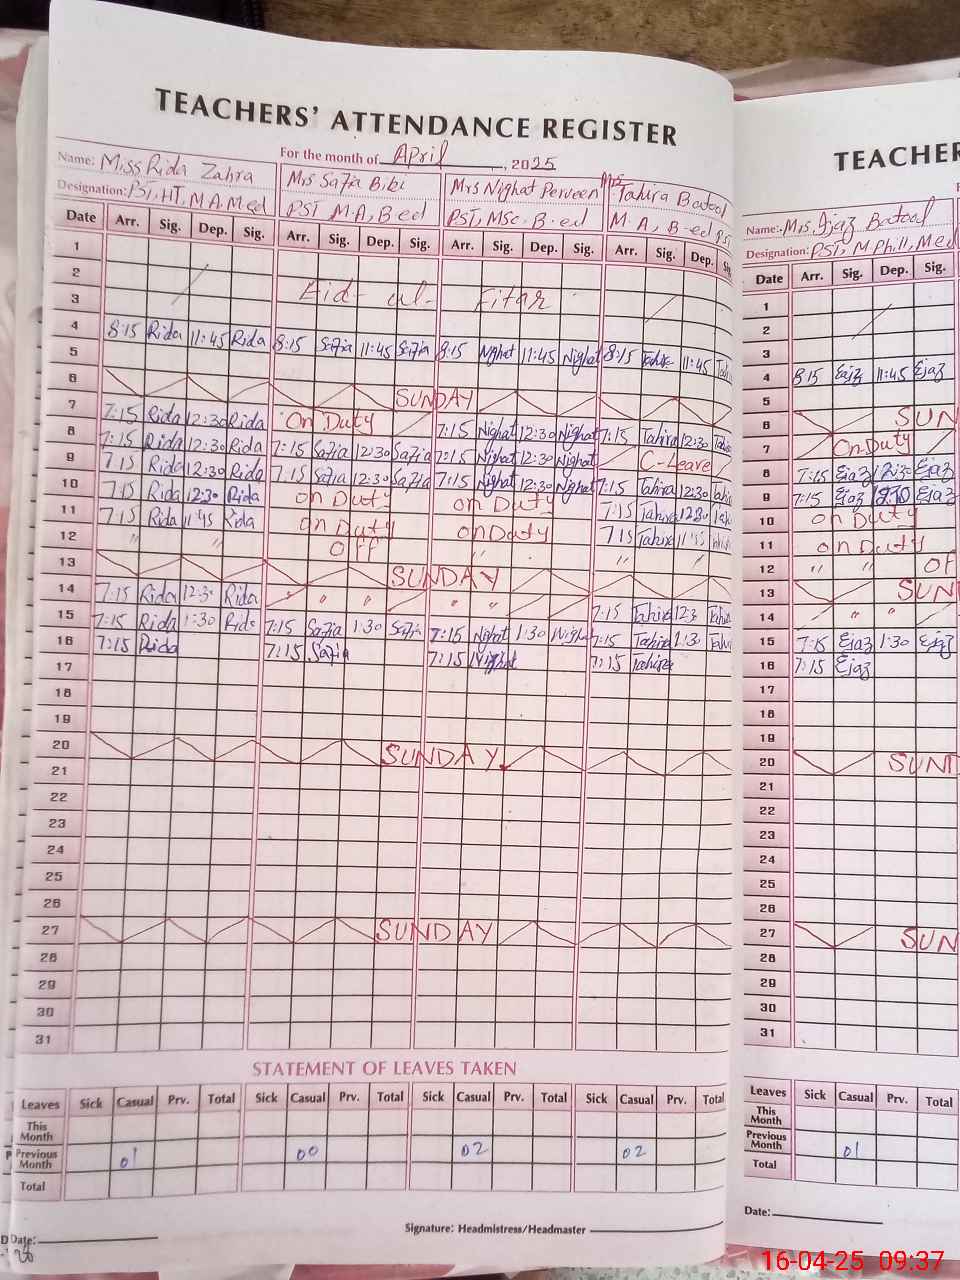 TEACHERS' ATTENDANCE REGISTER
For the month of April, 2025
Name: Miss Rida Zahra Mrs Safia Bibi Mrs Nighat Perveen Mrs Tahira Batool
Designation: PST, HT, M A, M ed PST M A, B ed PST, MSc. B-ed M A, B-ed PST
Date Arr. Sig. Dep. Sig. Arr. Sig. Dep. Sig. Arr. Sig. Dep. Sig. Arr. Sig. Dep.
1
2
3 Eid-ul-Fitar
4 8:15 Rida 11:45 Rida 8:15 Safia 11:45 Safia 8:15 Nighat 11:45 Nighat 8:15 Tahira 11:45
5
6 SUNDAY
7 7:15 Rida 12:30 Rida On Duty 7:15 Nighat 12:30 Nighat 7:15 Tahira 12:30
8 7:15 Rida 12:30 Rida 7:15 Safia 12:30 Safia 7:15 Nighat 12:30 Nighat C-Leave
9 7:15 Rida 12:30 Rida 7:15 Safia 12:30 Safia 7:15 Nighat 12:30 Nighat 7:15 Tahira 12:30
10 7:15 Rida 12:30 Rida on Duty on Duty 7:15 Tahira 12:30
11 7:15 Rida 11:45 Rida on Duty on Duty 7:15 Tahira 11:45
12 " " OFF " "
13 SUNDAY
14 7:15 Rida 12:3 Rida " " " " 7:15 Tahira 12:3
15 7:15 Rida 1:30 Rida 7:15 Safia 1:30 Safia 7:15 Nighat 1:30 Nighat 7:15 Tahira 1:30
16 7:15 Rida 7:15 Safia 7:15 Nighat 7:15 Tahira
17
18
19
20 SUNDAY
21
22
23
24
25
26
27 SUNDAY
28
29
30
31
STATEMENT OF LEAVES TAKEN
Leaves Sick Casual Prv. Total Sick Casual Prv. Total Sick Casual Prv. Total Sick Casual Prv. Total
This Month
Previous Month 01 00 02 02
Total
Date:
Signature: Headmistress/Headmaster
TEACHER
Name: Mrs. Ijaz Batool
Designation: PST, M Phill, M ed
Date Arr. Sig. Dep. Sig.
1
2
3
4 8:15 Ejaz 11:45 Ejaz
5
6 SUN
7 On Duty
8 7:15 Ejaz 12:30 Ejaz
9 7:15 Ejaz Ejaz
10 on Duty
11 on Duty
12 " " OF
13 SUN
14 " "
15 7:15 Ejaz 1:30 Ejaz
16 7:15 Ejaz
17
18
19
20 SUND
21
22
23
24
25
26
27 SUN
28
29
30
31
Leaves Sick Casual Prv. Total
This Month
Previous Month 01
Total
Date:
16-04-25 09:37